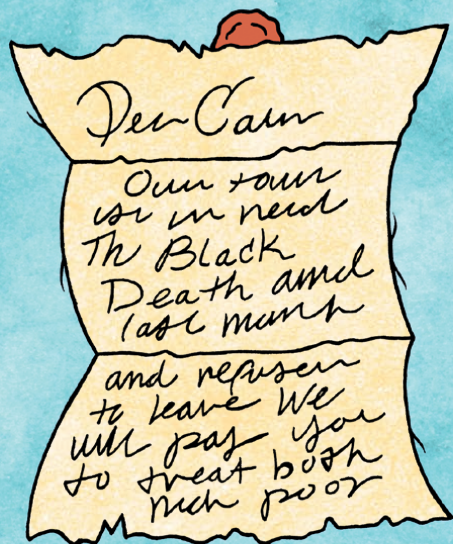 Dear Caun
Our town
is in need
Th Black
Death amd
last munth
and refusen
to leave We
will pay you
to treat both
rich poor